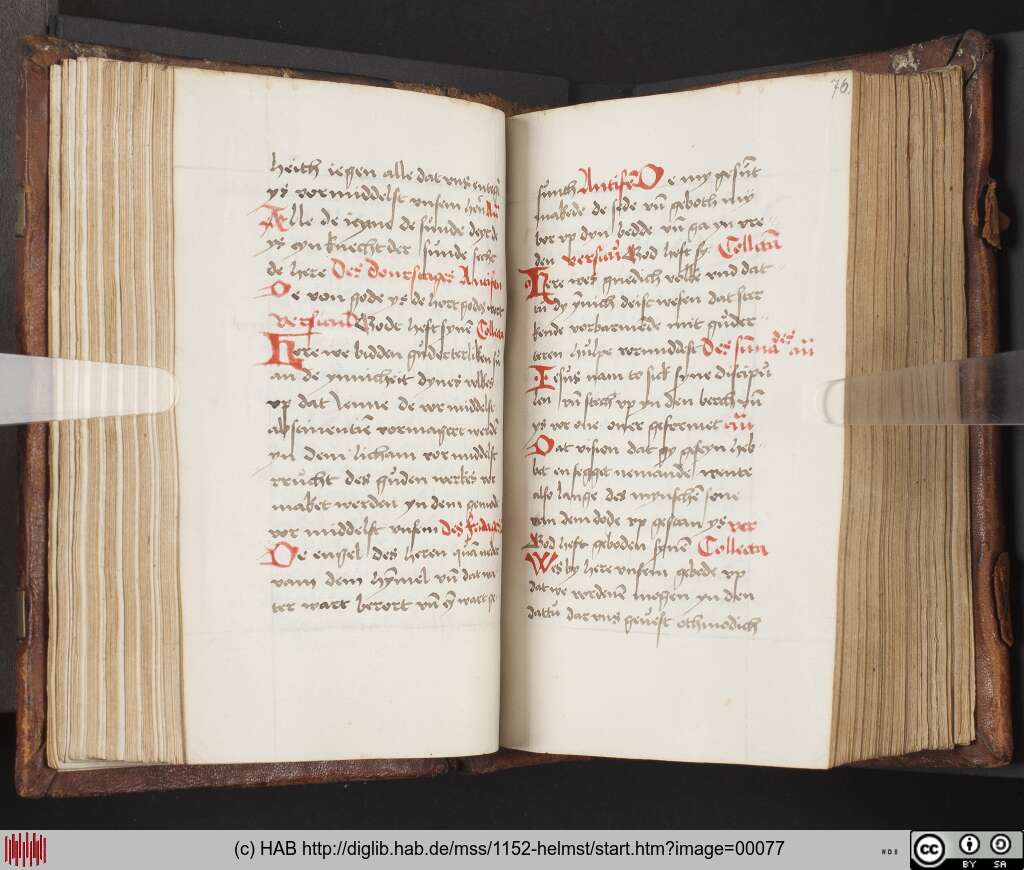 heith iegen alle dat vns entegē
ys vormiddelst vnsem herē Añ
Alle de ienne de sunde deyt de
ys eyn knecht der sunde secht
de here Des donrstages Antifen
De von gode ys de hort godes wort
versicul Bode heft synē Collecta
Here we bidden guderterliken su
an de ynnicheit dynes volkes
vp dat ienne de vor middelst
abstinentien vormagert werdē
yn dem licham vor middelst
vrucht des guden werkes vor
maket werden yn dem gemode
vor middelst vnsem Des fridages
De engel des heren quā neder
vam dem hymel vn̄ dat wa
ter wart berort vn̄ eȳ wart ge
76.
sunth Antifē De my gesūt
makede de sede vn̄ geboth my
bor vp dyn bedde vn̄ ga yn vre
den versicu Bod heft sy Collecta
Here wes gnedich volke vnd dat
tu dy ynnich deist wesen dat ster
kende vorbarmede mit guder
teren hulpe vormiddelst Des sunā des añ
Iesus nam to sick syne discipu
len vn̄ steech vp yn den berch vn̄
ys vor one
Dat vision dat gy geseyn heb
bet en segget nemande wente
also lange des mynschē sone
von dem dode vp gestan ys ver
Bod heft geboden synē Collecta
Wes by here vnsem gebede vp
dat we vordenē mogen yn den
dattu dar vns geuest othmodich
(c) HAB http://diglib.hab.de/mss/1152-helmst/start.htm?image=00077
WDB
cc
BY SA